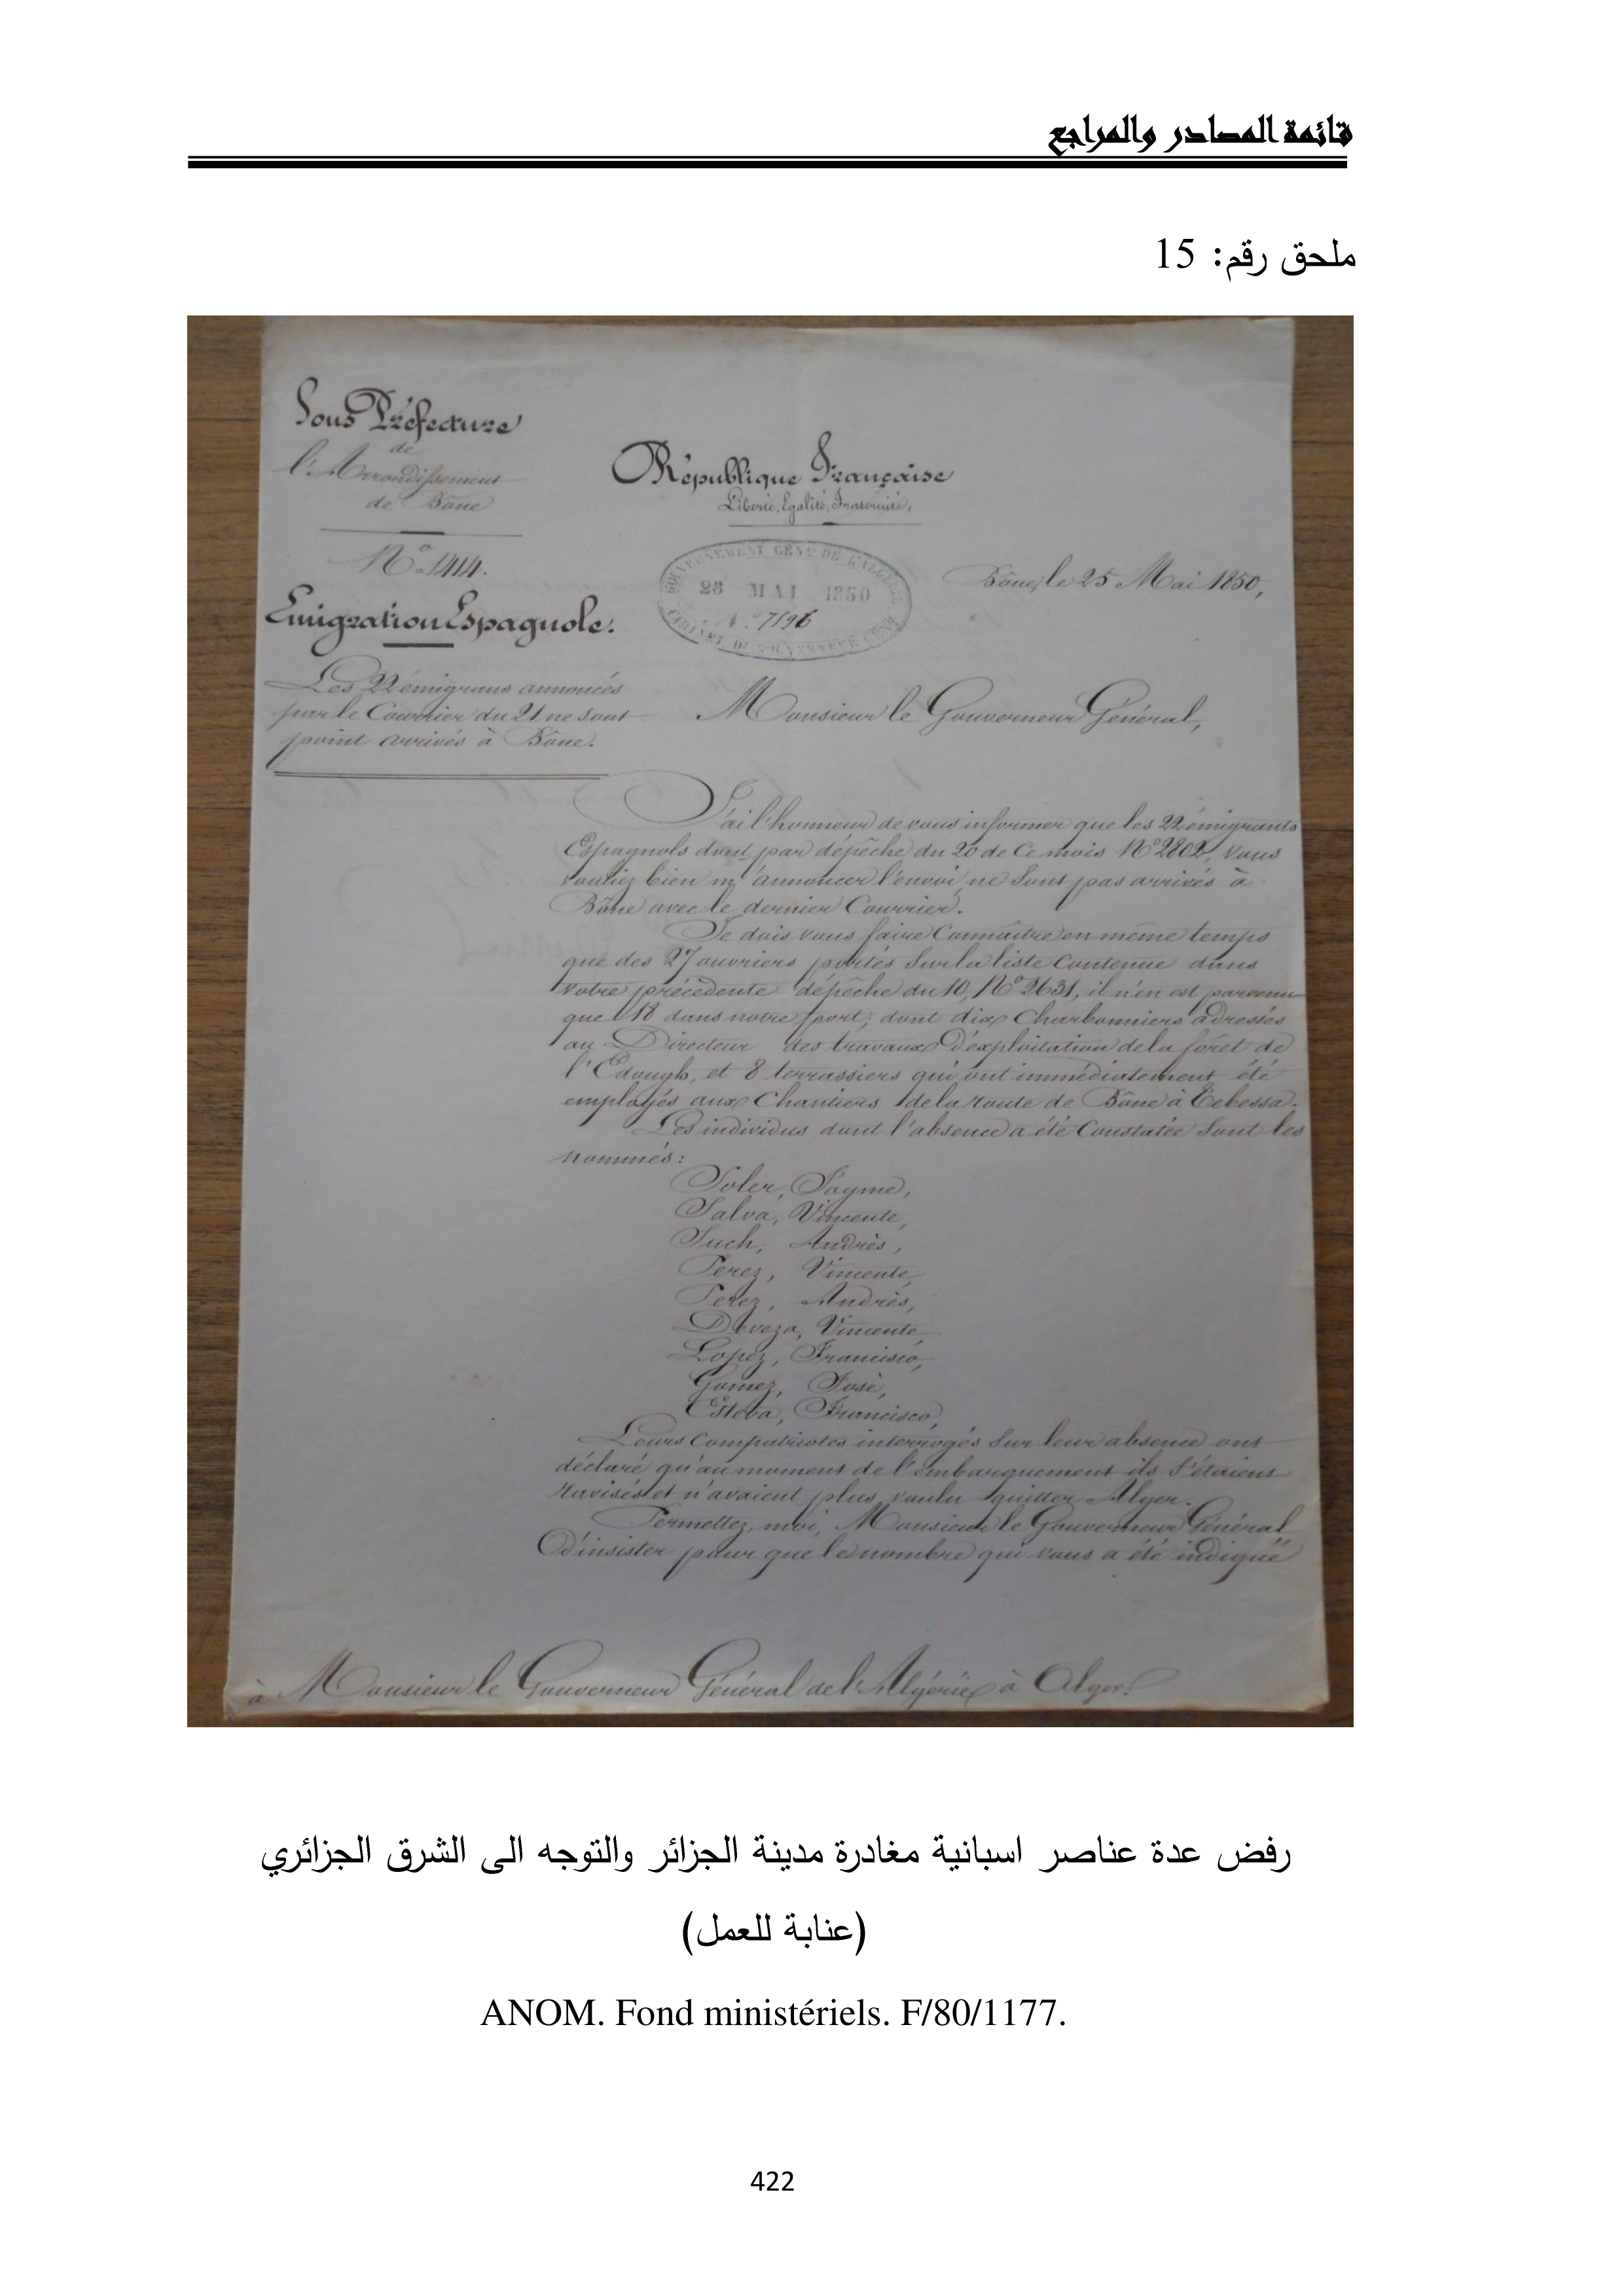 قائمة المصادر والمراجع
ملحق رقم: 15
Sous Préfecture
de
l'Arrondissement
de Bône
République Française
Liberté, Egalité, Fraternité,
Nº 1414.
GOUVERNEMENT GÉNal DE L'ALGÉRIE
28 MAI 1850
Nº 7196
CABINET DU GOUVERNEUR GÉNal
Bône, le 25 Mai 1850,
Emigration Espagnole.
Les 22 émigrans annoncés
par le Courrier du 21 ne sont
point arrivés à Bône.
Monsieur le Gouverneur Général,
J'ai l'honneur de vous informer que les 22 émigrants
Espagnols dont par dépêche du 20 de ce mois Nº 2802, vous
vouliez bien m'annoncer l'envoi, ne sont pas arrivés à
Bône avec le dernier Courrier.
Je dois vous faire Connaître en même temps
que des 27 ouvriers portés sur la liste Contenue dans
votre précédente dépêche du 10, Nº 2631, il n'en est parvenu
que 18 dans notre port; dont dix Charbonniers adressés
au Directeur des travaux d'exploitation de la forêt de
l'Edough, et 8 terrassiers qui ont immédiatement été
employés aux Chantiers de la route de Bône à Tebessa.
Les individus dont l'absence a été Constatée sont les
nommés:
Soler, Jayme,
Salva, Vincente,
Such, Andrès,
Perez, Vincente,
Perez, Andrès,
Deveza, Vincente,
Lopez, Francisco,
Gomez, José,
Esteva, Francisco,
Leurs Compatriotes interrogés sur leur absence ont
déclaré qu'au moment de l'embarquement ils s'étaient
ravisés et n'avaient plus voulu quitter Alger.
Permettez, moi, Monsieur le Gouverneur Général
D'insister pour que le nombre qui vous a été indiqué
à Monsieur le Gouverneur Général de l'Algérie à Alger.
رفض عدة عناصر اسبانية مغادرة مدينة الجزائر والتوجه الى الشرق الجزائري
(عنابة للعمل)
ANOM. Fond ministériels. F/80/1177.
422